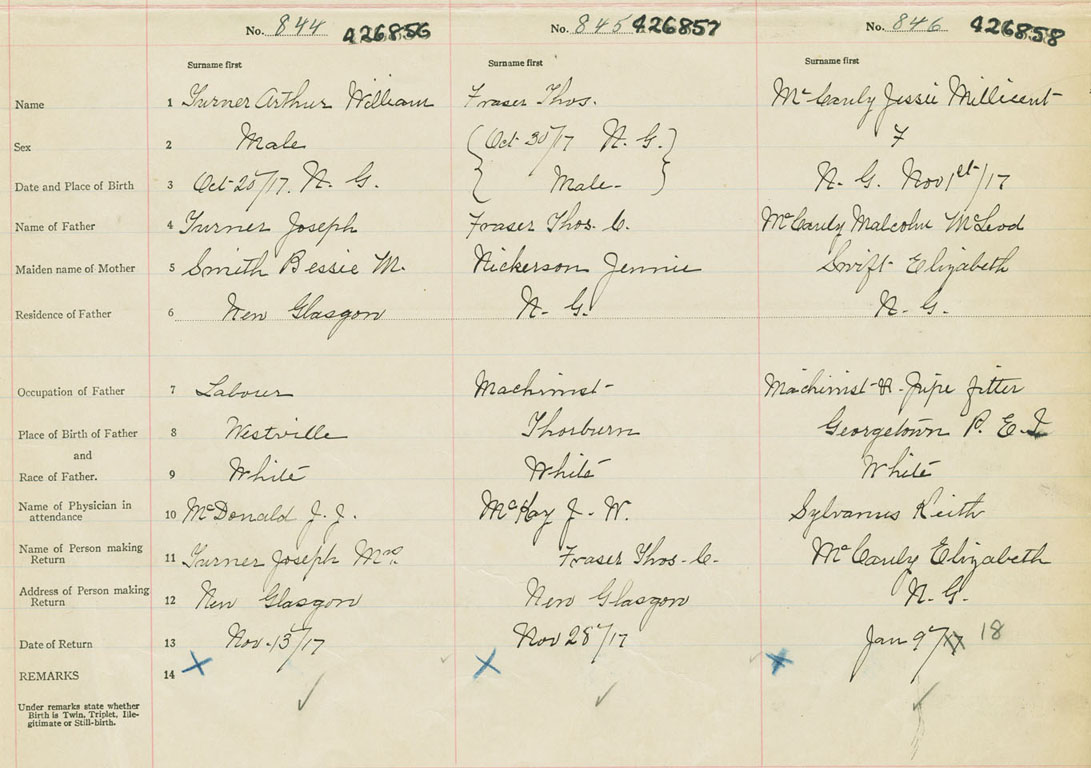 No. 844 426856 No. 845 426857 No. 846 426858
Surname first Surname first Surname first
Name 1 Turner Arthur William Fraser Thos. McCauly Jessie Millicent
Sex 2 Male (Oct 30/17 N. G.) F
Date and Place of Birth 3 Oct 25/17. N. G. Male- N. G. Nov 1st/17
Name of Father 4 Turner Joseph Fraser Thos. C. McCauly Malcolm McLeod
Maiden name of Mother 5 Smith Bessie M. Nickerson Jennie Swift Elizabeth
Residence of Father 6 New Glasgow N. G. N. G.
Occupation of Father 7 Labour Machinist Machinist & Pipe fitter
Place of Birth of Father 8 Westville Thorburn Georgetown P. E. I
and
Race of Father. 9 White White White
Name of Physician in
attendance 10 McDonald J. J. McKay J. W. Sylvanus Keith
Name of Person making
Return 11 Turner Joseph Mrs. Fraser Thos. C. McCauly Elizabeth
Address of Person making
Return 12 New Glasgow New Glasgow N. G.
Date of Return 13 Nov. 13/17 Nov 28/17 Jan 9/17 18
REMARKS 14
Under remarks state whether
Birth is Twin, Triplet, Ille-
gitimate or Still-birth.